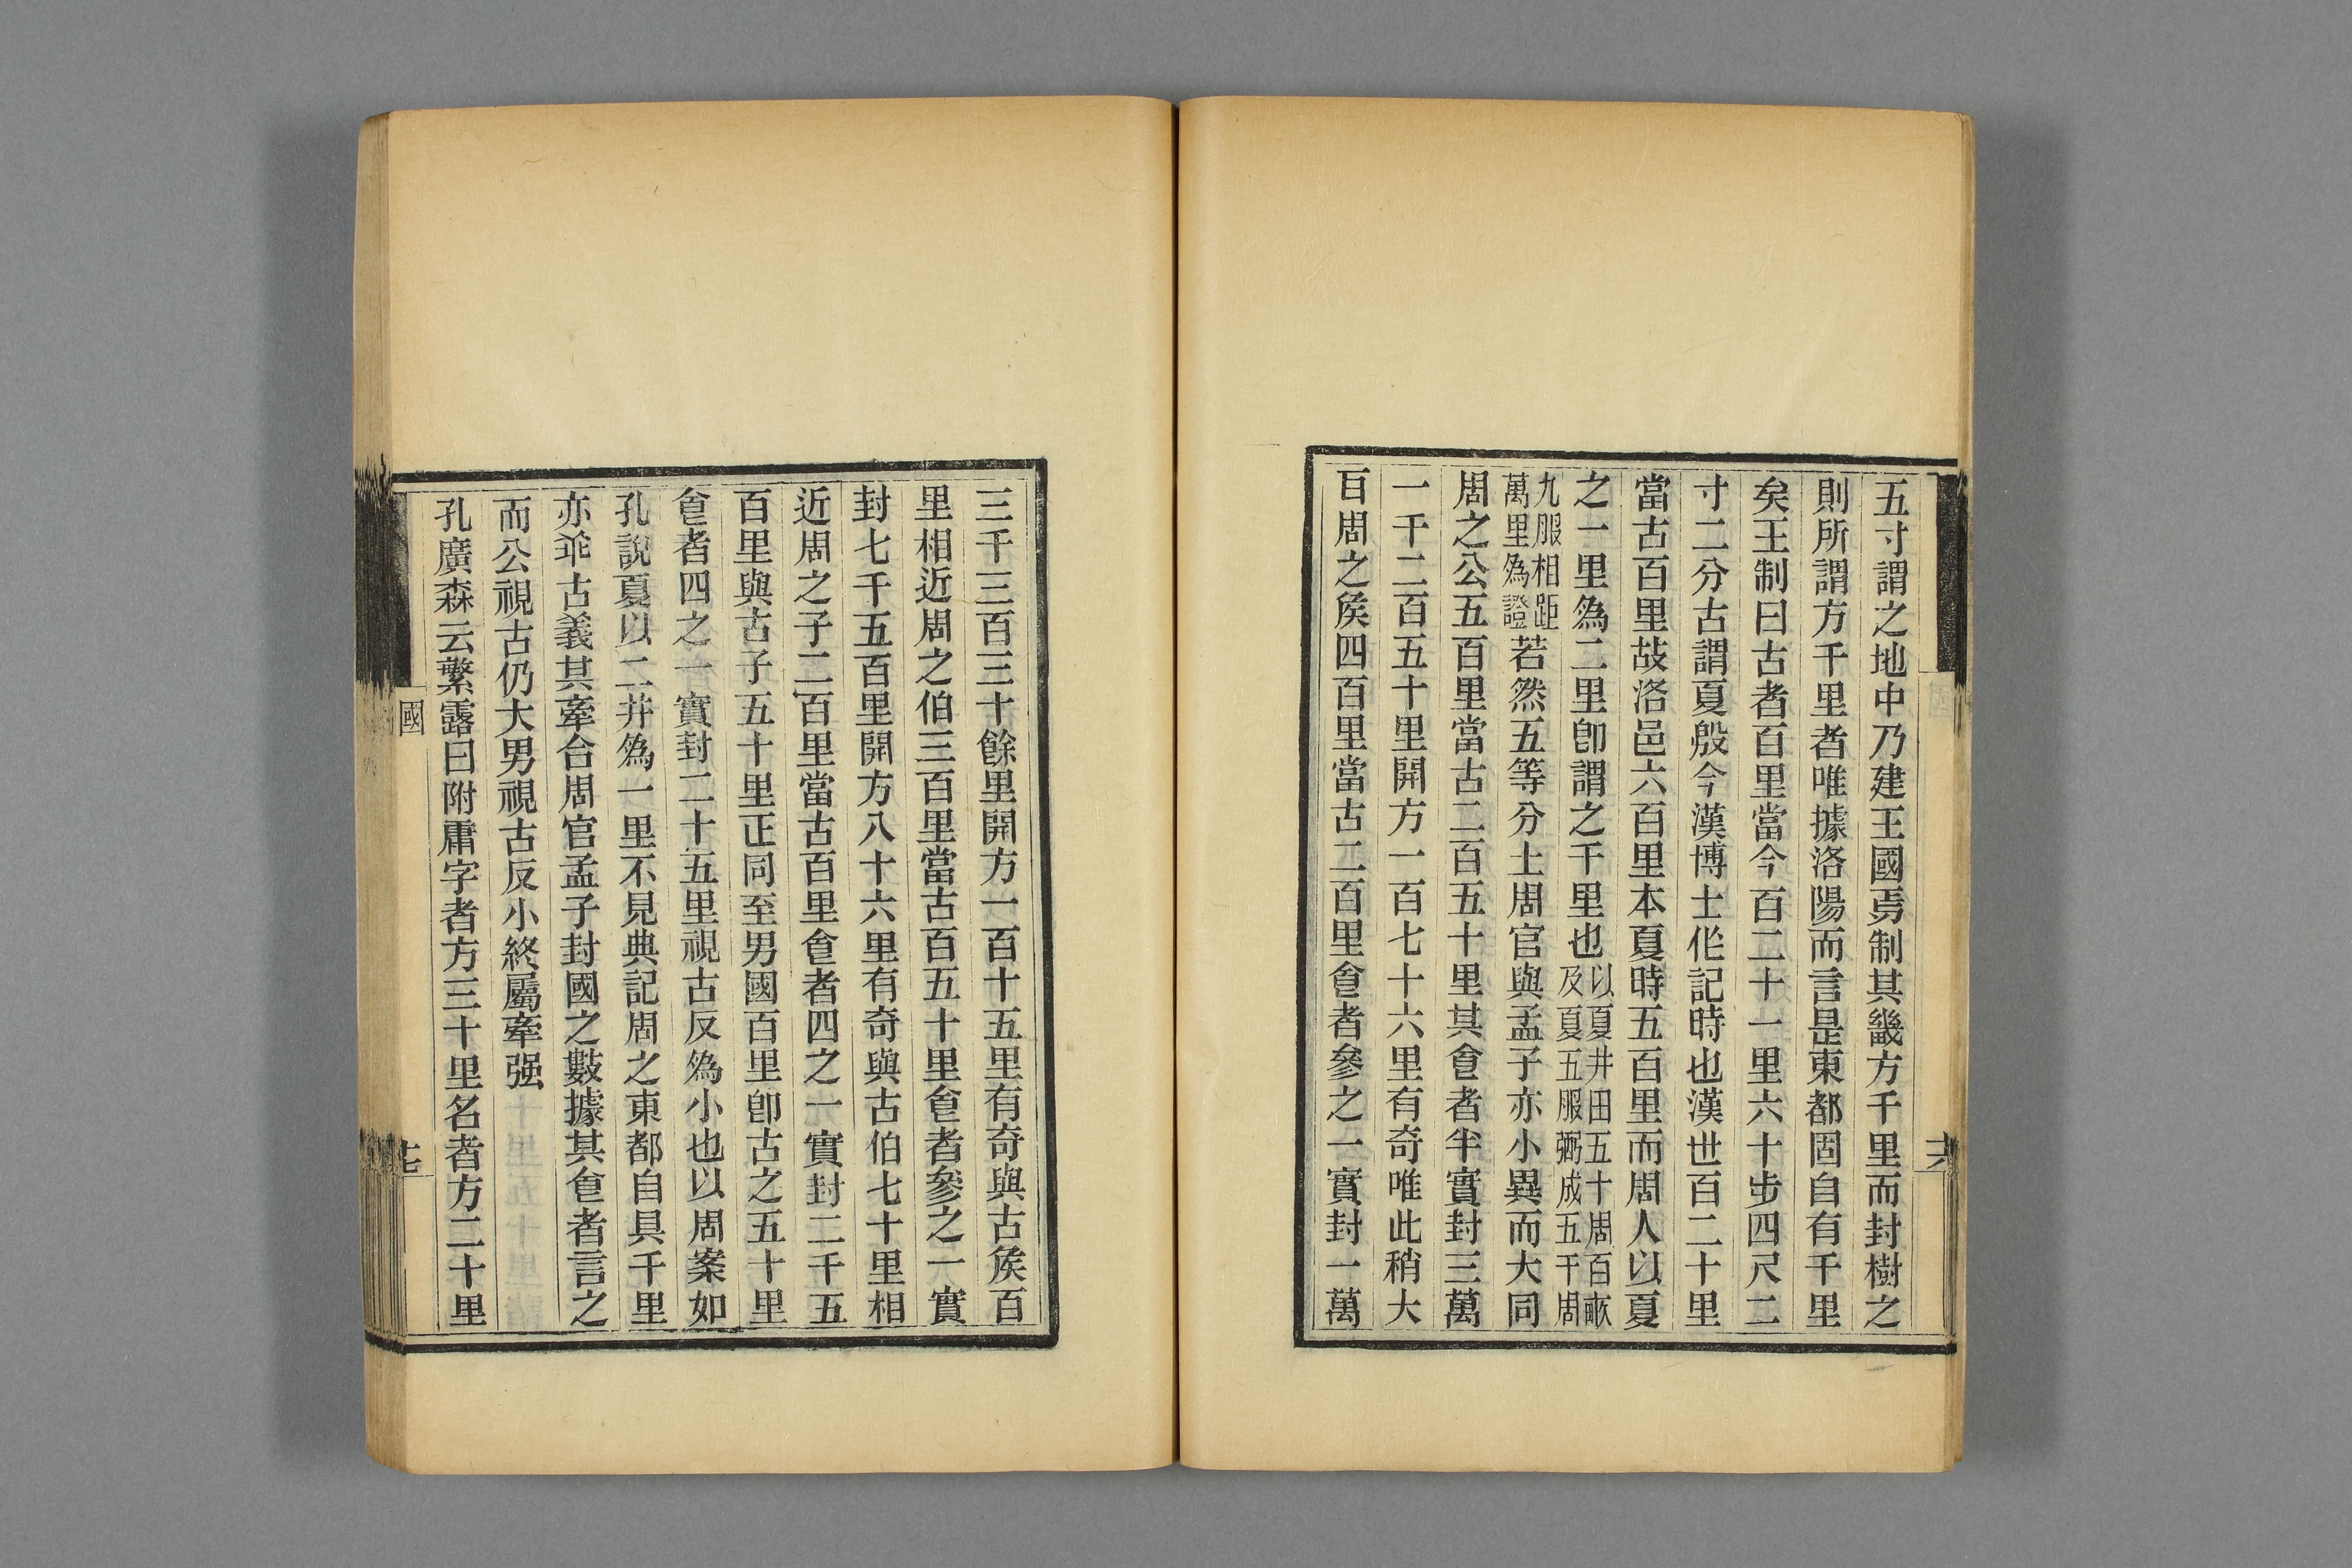 五寸謂之地中乃建王國焉制其畿方千里而封樹之
則所謂方千里者唯據洛陽而言是東都固自有千里
矣王制曰古者百里當今百二十一里六十步四尺二
寸二分古謂夏殷今漢博士作記時也漢世百二十里
當古百里故洛邑六百里本夏時五百里而周人以夏
之一里爲二里卽謂之千里也以夏井田五十周百畝
及夏五服弼成五千周
九服相距
萬里爲證若然五等分土周官與孟子亦小異而大同
周之公五百里當古二百五十里其食者半實封三萬
一千二百五十里開方一百七十六里有奇唯此稍大
百周之矦四百里當古二百里食者參之一實封一萬
三千三百三十餘里開方一百十五里有奇與古矦百
里相近周之伯三百里當古百五十里食者參之一實
封七千五百里開方八十六里有奇與古伯七十里相
近周之子二百里當古百里食者四之一實封二千五
百里與古子五十里正同至男國百里卽古之五十里
食者四之一實封二十五里視古反爲小也以周案如
孔說夏以二井爲一里不見典記周之東都自具千里
亦乖古義其牽合周官孟子封國之數據其食者言之
而公視古仍大男視古反小終屬牽强
孔廣森云繁露曰附庸字者方三十里名者方二十里
國
十七
十六